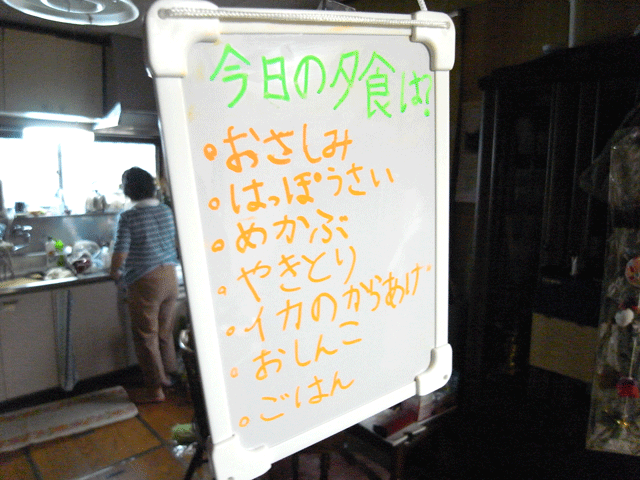 今日の夕食は?
おさしみ
はっぽうさい
めかぶ
やきとり
イカのからあげ
おしんこ
ごはん